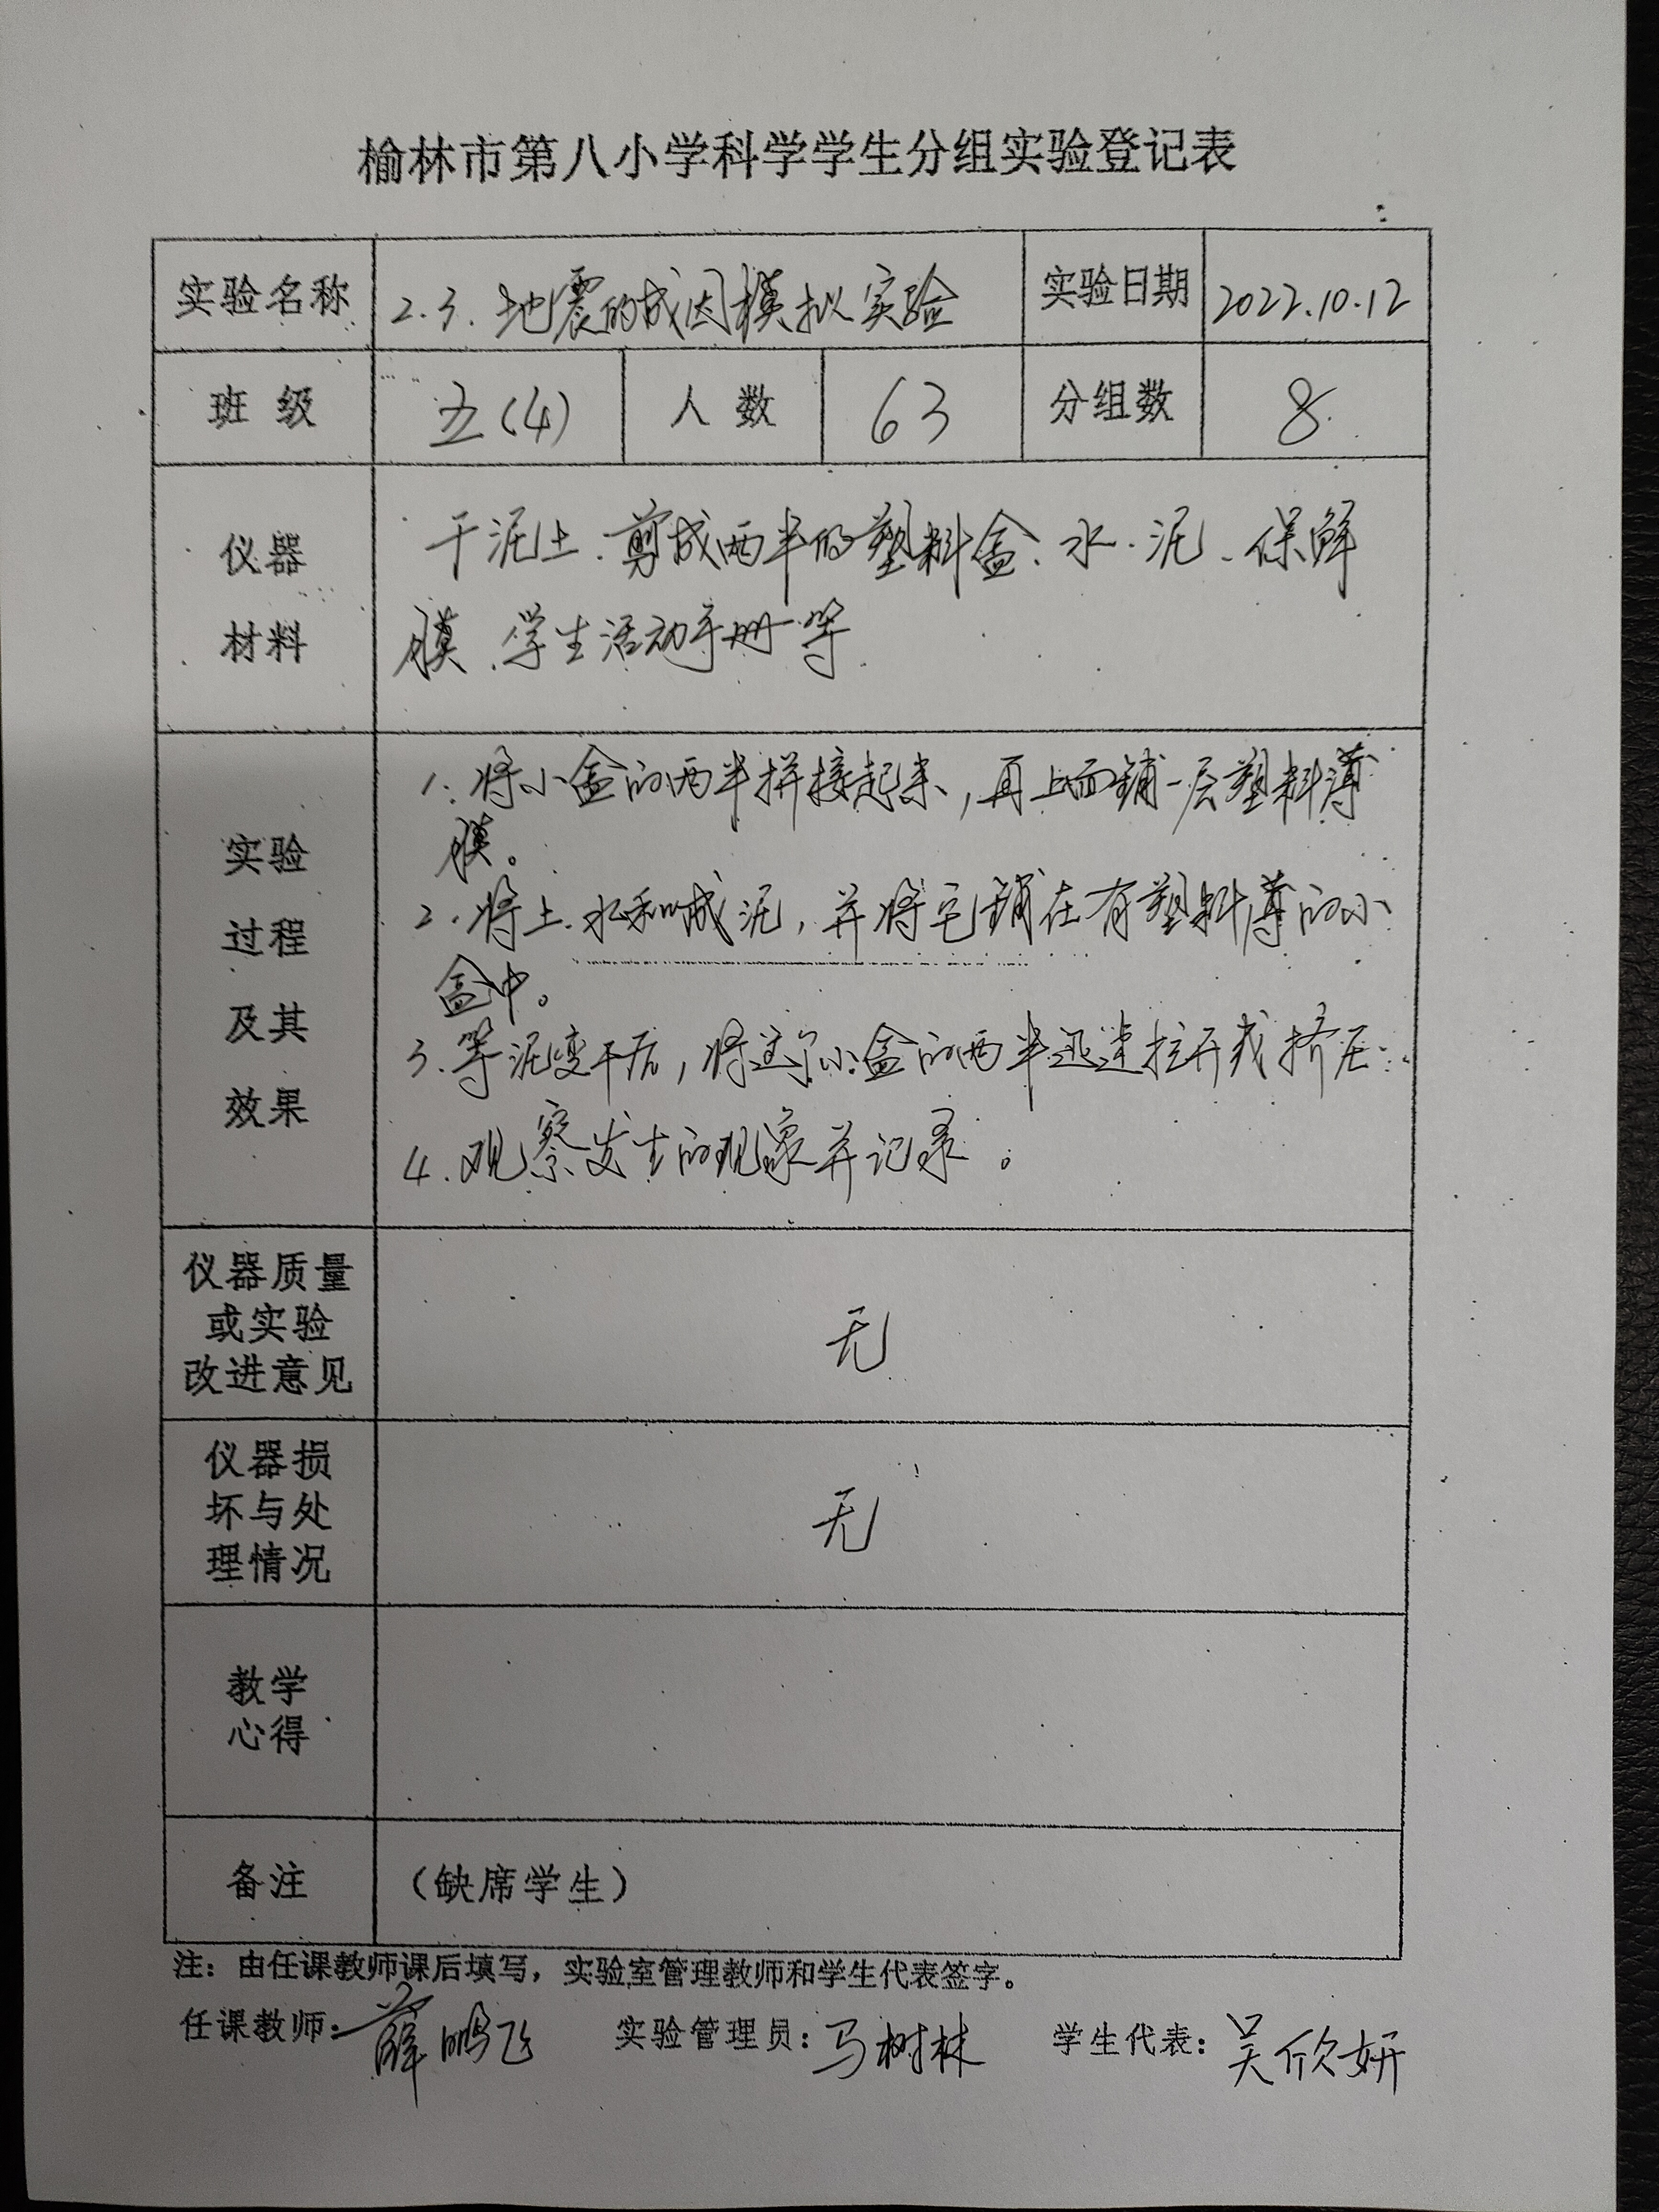 榆林市第八小学科学学生分组实验登记表
实验名称 2.3.地震的成因模拟实验 实验日期 2022.10.12
班级 五(4) 人数 63 分组数 8
仪器
材料
干泥土、剪成两半的塑料盒、水、泥、保鲜
膜、学生活动手册等
实验
过程
及其
效果
1.将小盒的两半拼接起来,再上面铺一层塑料薄
膜。
2.将土、水和成泥,并将它铺在有塑料薄的小
盒中。
3.等泥变干后,将这个小盒的两半迅速拉开或挤压.
4.观察发生的现象并记录。
仪器质量
或实验
改进意见
无
仪器损
坏与处
理情况
无
教学
心得
备注 (缺席学生)
注:由任课教师课后填写,实验室管理教师和学生代表签字。
任课教师:薛鹏飞 实验管理员:马树林 学生代表:吴欣妍